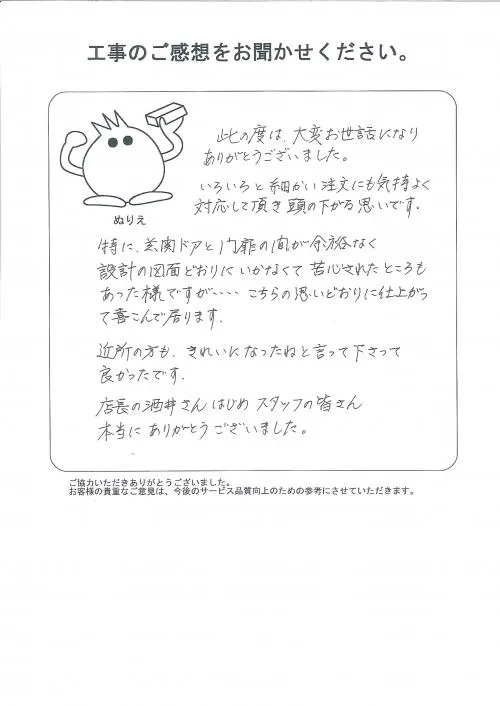 工事のご感想をお聞かせください。
ぬりえ
此の度は、大変お世話になり
ありがとうございました。
いろいろと細かい注文にも気持よく
対応して頂き頭の下がる思いです。
特に、玄関ドアと門扉の間が余裕なく
設計の図面どおりにいかなくて苦心されたところも
あった様ですが‥‥こちらの思いどおりに仕上がっ
て喜こんで居ります.
近所の方も、きれいになったねと言って下さって
良かったです.
店長の酒井さんはじめスタッフの皆さん
本当にありがとうございました。
ご協力いただきありがとうございました。
お客様の貴重なご意見は、今後のサービス品質向上のための参考にさせていただきます。